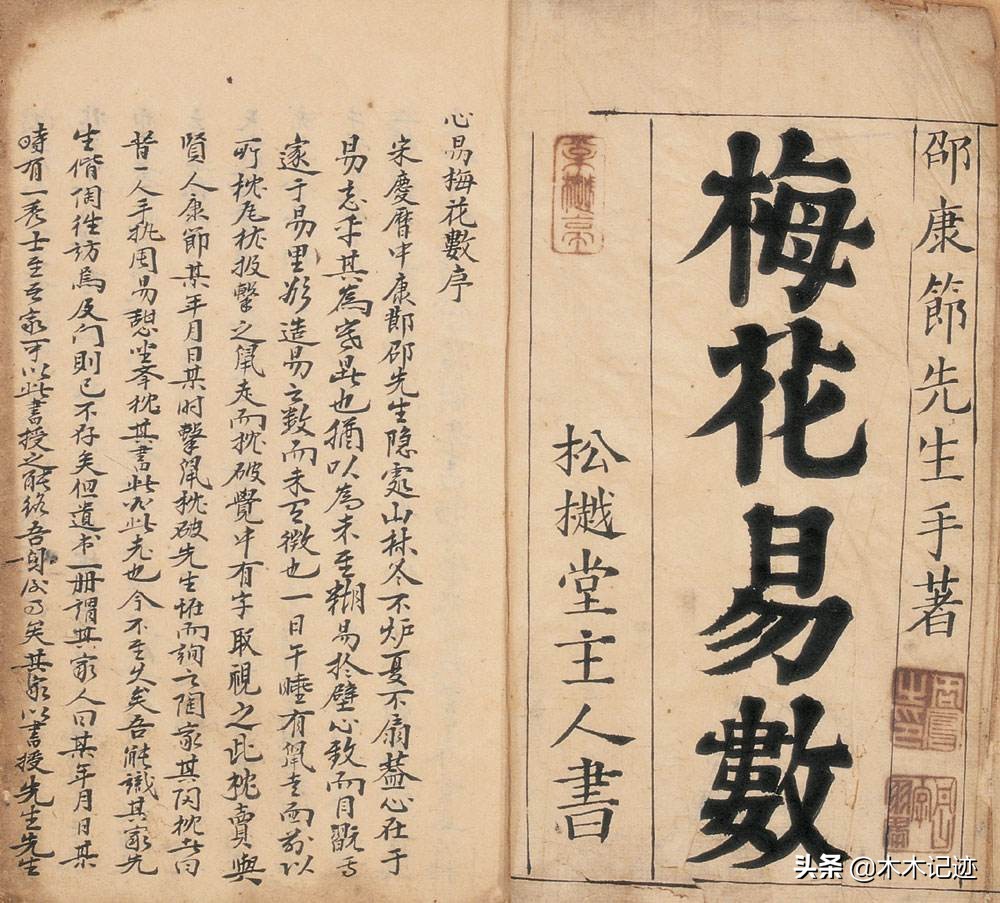 邵康節先生手著
梅花易數
松樾堂主人書
心易梅花數序
宋慶曆中康節邵先生隱處山林冬不炉夏不扇蓋心在于
易忘乎其為寒暑也猶以為未至糊易於壁心致而目翫焉
邃于易里欲造易之数而未有徵也一日午睡有鼠走而前以
所枕瓦枕投擊之鼠走而枕破覺中有字取視之此枕賣與
賢人康節某年月日某时擊鼠枕破先生怪而詢之陶家其陶枕者曰
昔一人手执周易憩坐举枕其書此必此老也今不至久矣吾能識其家先
生偕陶往訪焉及门則已不存矣但遺书一册謂其家人曰某年月日某
時有一秀士至吾家可以此書授之能終吾身後事矣其家以書授先生先生
头条 @木木记迹